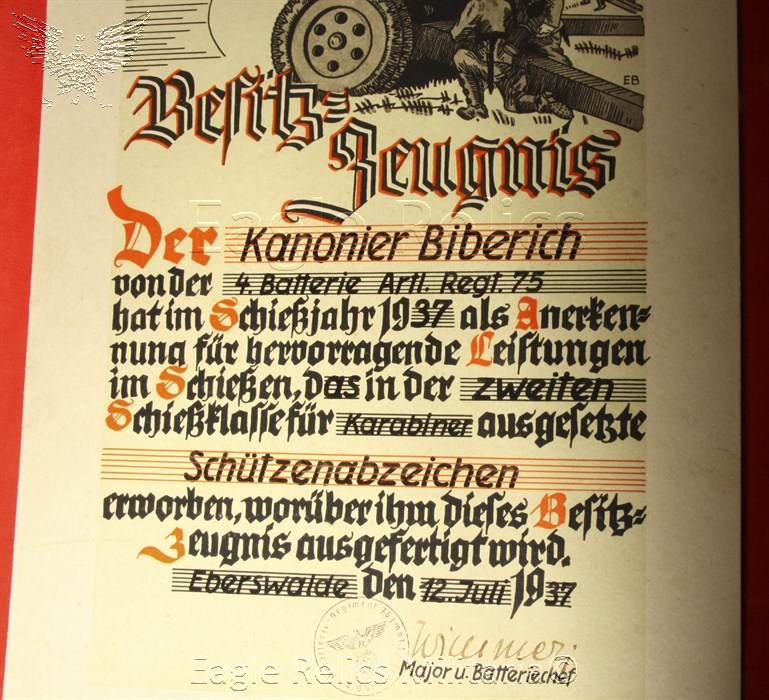 EB
Besitz=
Zeugnis
Eagle Relics
Der Kanonier Biberich
von der 4. Batterie Artl. Regt. 75
hat im Schießjahr 1937 als Anerken=
nung für hervorragende Leistungen
im Schießen, das in der zweiten
Schießklasse für Karabiner ausgesetzte
Schützenabzeichen
erworben, worüber ihm dieses Besitz=
Zeugnis ausgefertigt wird.
Eberswalde den 12. Juli 1937
Major u. Batteriechef
Eagle Relics Militaria©